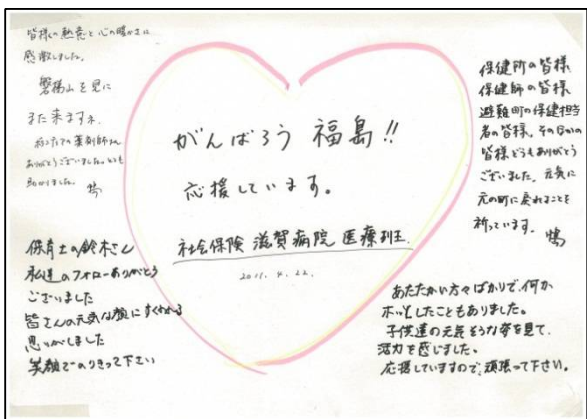 皆様の熱意と心の暖かさに
感激しました。
磐梯山を見に
また来ますネ.
ボランティアの薬剤師さん
ありがとうございました。とても
助かりました。
がんばろう 福島!!
応援しています。
社会保険 滋賀病院 医療班.
2011. 4. 22.
保健所の皆様
保健師の皆様
避難町の保健担当
者の皆様、その日かの
皆様どうもありがとう
ございました。元気に
元の町に戻れることを
祈っています。
保育士の鈴木さん
私達のフォローありがとう
ございました
皆さんの元気な顔にすくわれる
思いがしました
笑顔でのりきって下さい
あたたかい方々ばかりで、何か
ホッとしたこともありました。
子供達の元気そうな姿を見て、
活力を感じました。
応援していますので、頑張って下さい。